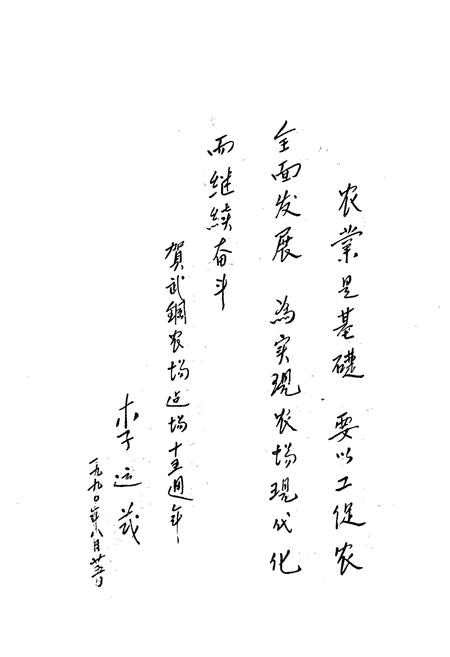 农業是基礎 要以工促农
全面发展 為实現农场現代化
而继續奋斗
賀武鋼农场迠场十五週年
李运
一九九〇年八月廿五日